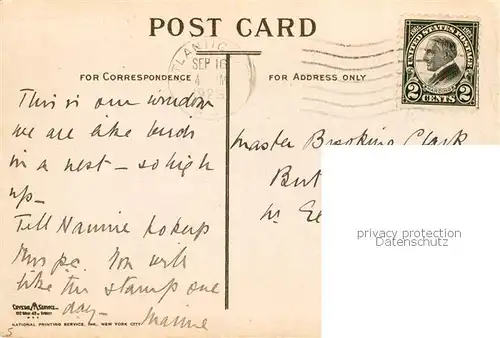 POST CARD
ATLANTIC
SEP 16
4 M
192
FOR CORRESPONDENCE
FOR ADDRESS ONLY
UNITED STATES POSTAGE
2 CENTS 2
This is our window
we are like birds
in a nest - so high
up -
Tell Nannie to keep
this pc. You will
like the stamp one
day -
Master Brooking Clark
But
W.
privacy protection
Datenschutz
CRYSTAL SERVICE
NATIONAL PRINTING SERVICE, INC. NEW YORK CITY